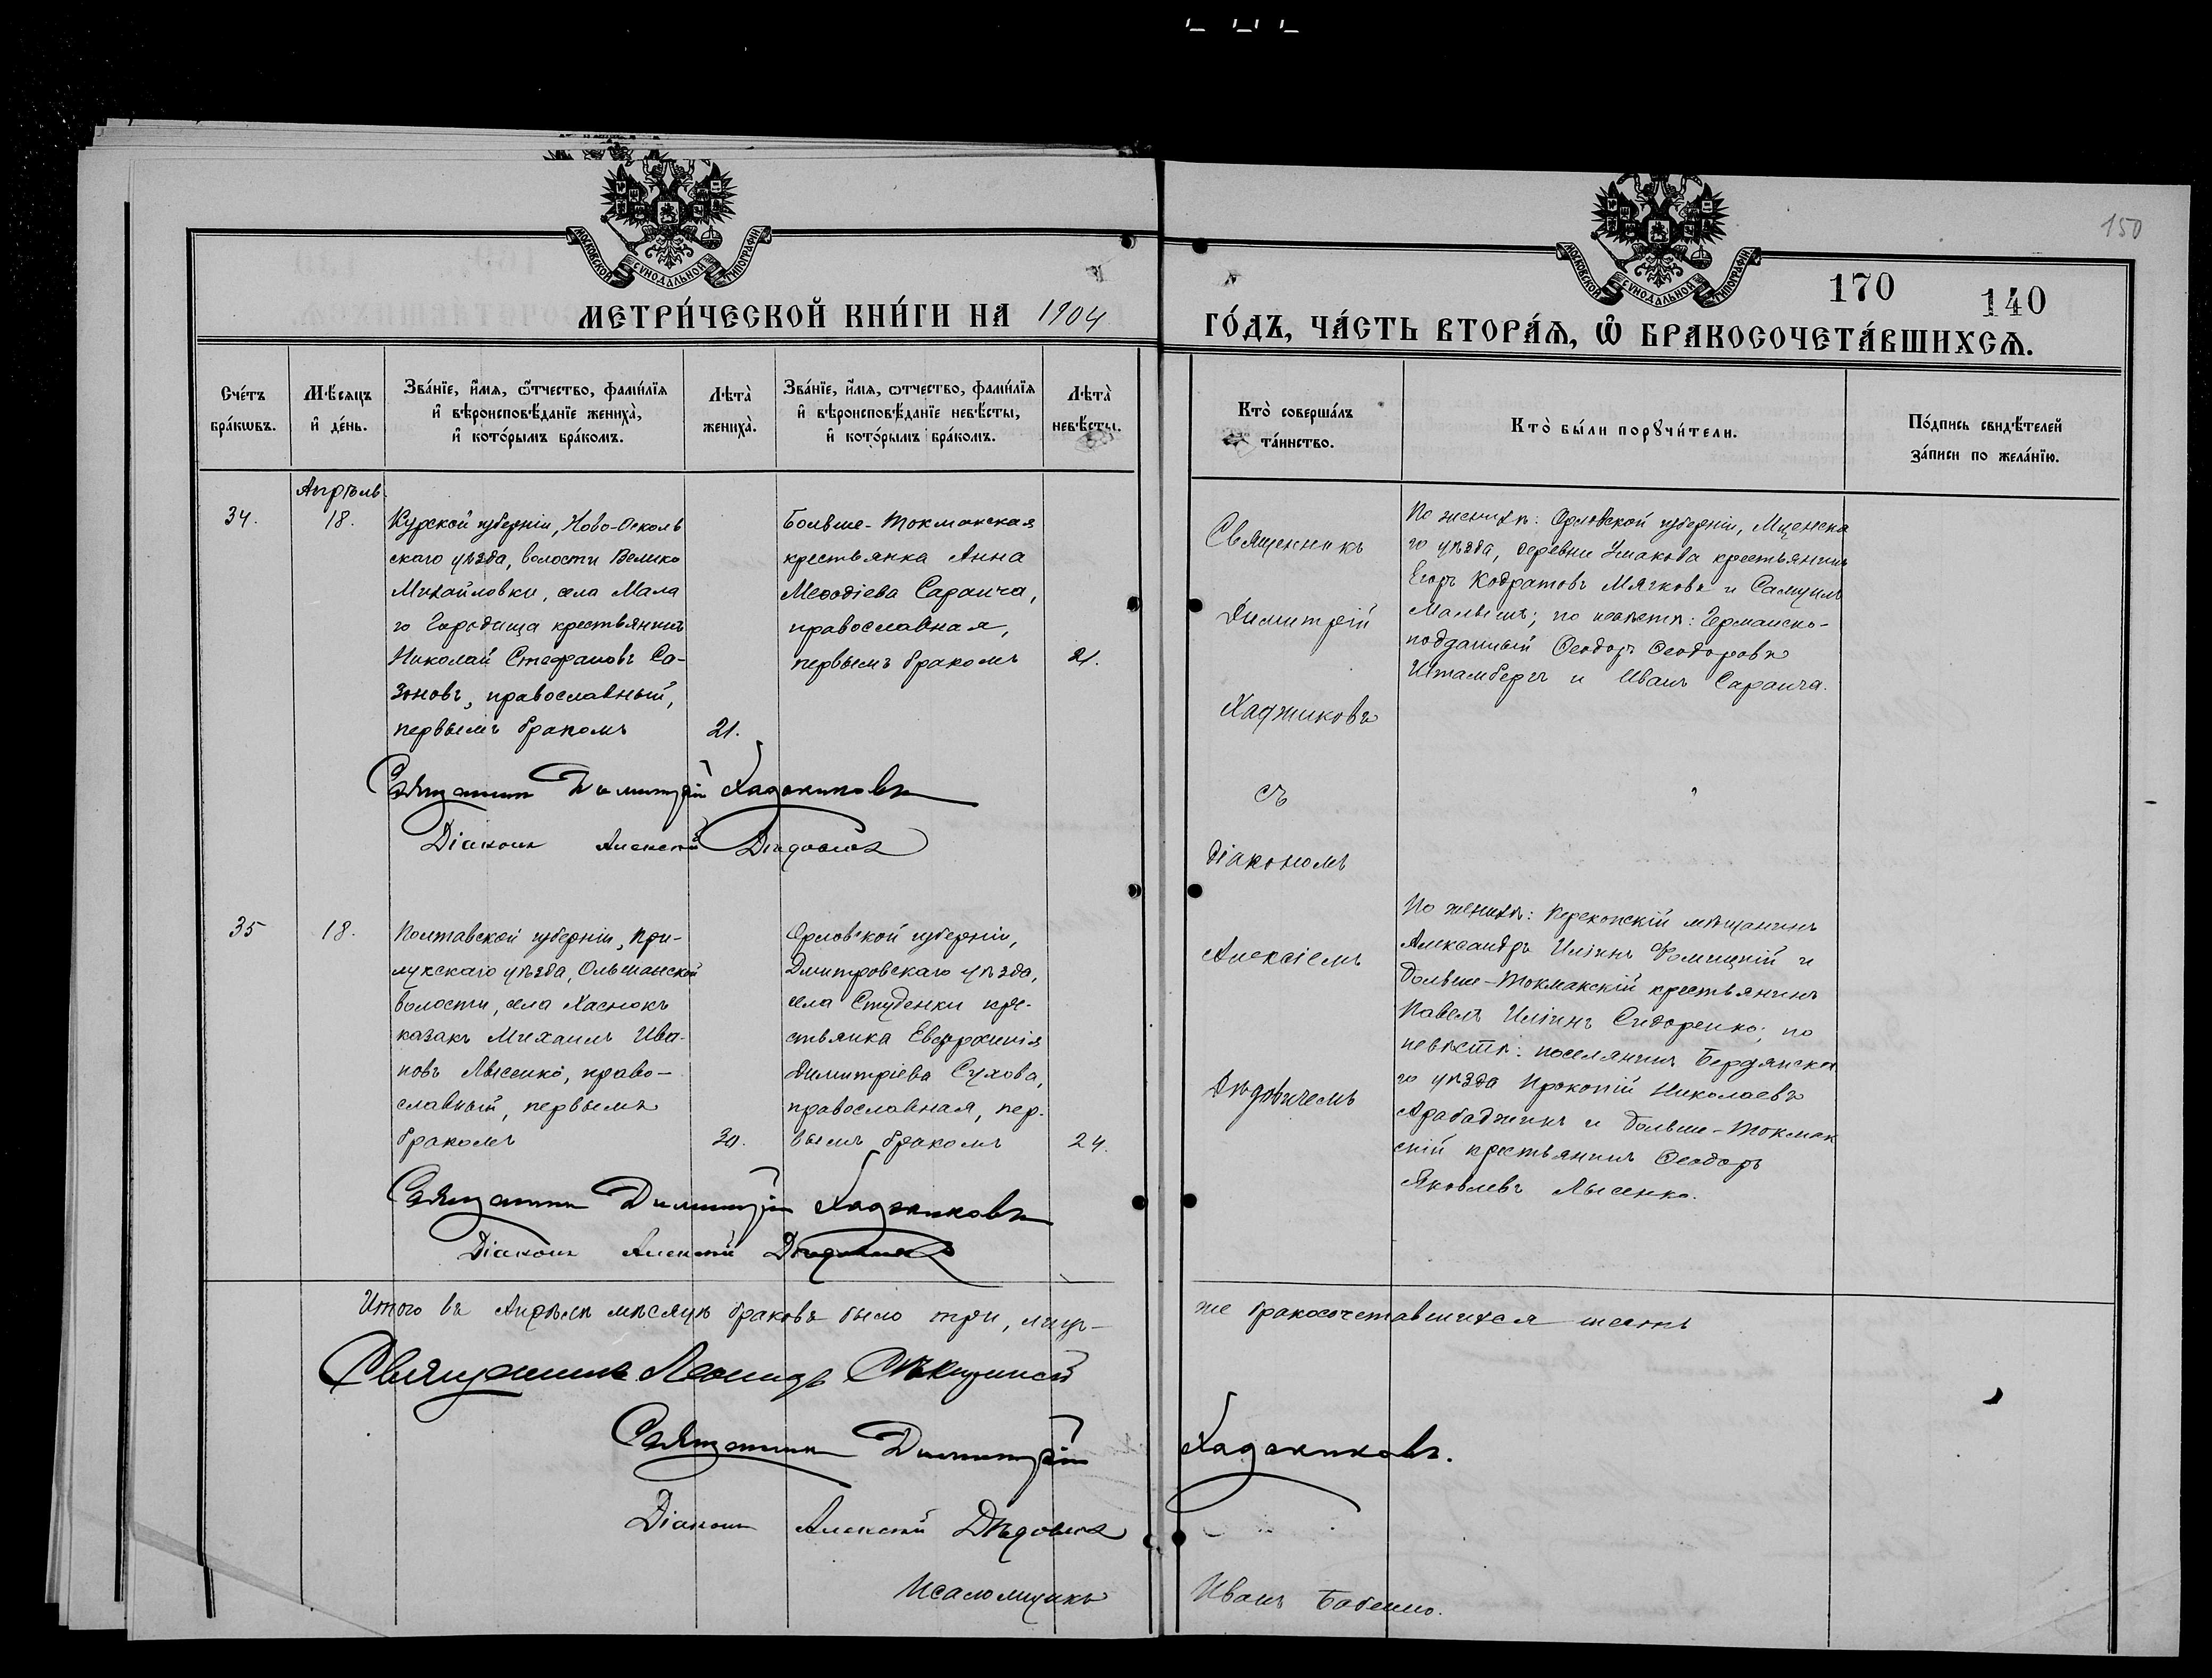 МОСКОВСКОЙ СѴНОДАЛЬНОЙ ТИПОГРАФІИ
МОСКОВСКОЙ СѴНОДАЛЬНОЙ ТИПОГРАФІИ
150
170
140
МЕТРИ́ЧЕСКОЙ КНИ́ГИ НА 1904
ГО́ДЪ, ЧА́СТЬ ВТОРА́Ѧ, Ѡ҆ БРАКОСОЧЕТА́ВШИХСѦ.
Сче́тъ
бра́кѡвъ.
Мѣ́сяцъ
и҆ де́нь.
Зва́нїе, и҆́мя, ѻ҆́тчество, фами́лїя
и҆ вѣроисповѣ́данїе жениха̀,
и҆ кото́рымъ бра́комъ.
Лѣта̀
жениха̀.
Зва́нїе, и҆́мя, ѻтчество, фами́лїя
и҆ вѣроисповѣ́данїе невѣ́сты,
и҆ кото́рымъ бра́комъ.
Лѣта̀
невѣ́сты.
Кто̀ соверша́лъ
та́инство.
Кто̀ бы́ли порꙋчи́тели.
По́дпись свидѣ́телей
за́писи по жела́нїю.
Апрѣль
34.
18.
Курской губерніи, Ново-Осколь
скаго уѣзда, волости Велико
Михайловки, села Мала
го Городища крестьянинъ
Николай Стефановъ Са-
зоновъ, православный,
первымъ бракомъ
21.
Больше-Токмакская
крестьянка Анна
Меѳодіева Саранча,
православная,
первымъ бракомъ
21.
Священникъ
Димитрій
Хаджиковъ
съ
діакономъ
Алексіемъ
Дѣдовичемъ
По женихѣ: Орловской губерніи, Мценска
го уѣзда, деревни крестьянинъ
Егоръ Кодратовъ Мягковъ и Самуилъ
по невѣстѣ: Германско-
подданный Ѳеодоръ Ѳеодоровъ
Штамбергъ и Иванъ Саранча.
Священникъ Димитрій Хаджиковъ
Діаконъ Алексій Дѣдовичъ
35
18.
Полтавской губерніи, При-
лукскаго уѣзда, Ольшанской
волости, села Хаснокъ
казакъ Михаилъ Ива-
новъ Лысенко, право-
славный, первымъ
бракомъ
30.
Орловской губерніи,
Дмитровскаго уѣзда,
села Студенки кре-
стьянка Евфросинія
Димитріева Сухова,
православная, пер-
вымъ бракомъ
24.
По женихѣ: Перекопскій мѣщанинъ
Александръ Иліинъ Фомицкій и
Больше-Токмакскій крестьянинъ
Павелъ Иліинъ Сидоренко; по
невѣстѣ: поселянинъ Бердянска
го уѣзда Прокопій Николаевъ
Арабаджинъ и Больше-Токмак
скій крестьянинъ Ѳеодоръ
Яковлевъ Лысенко.
Священникъ Димитрій Хаджиковъ
Діаконъ Алексій Дѣдовичъ
Итого въ Апрѣлѣ мѣсяцѣ браковъ было три, лицъ-
же бракосочетавшихся шесть
Священникъ Леонидъ
Священникъ Димитрій Хаджиковъ.
Діаконъ Алексій Дѣдовичъ
Псаломщикъ Иванъ Бабенко.